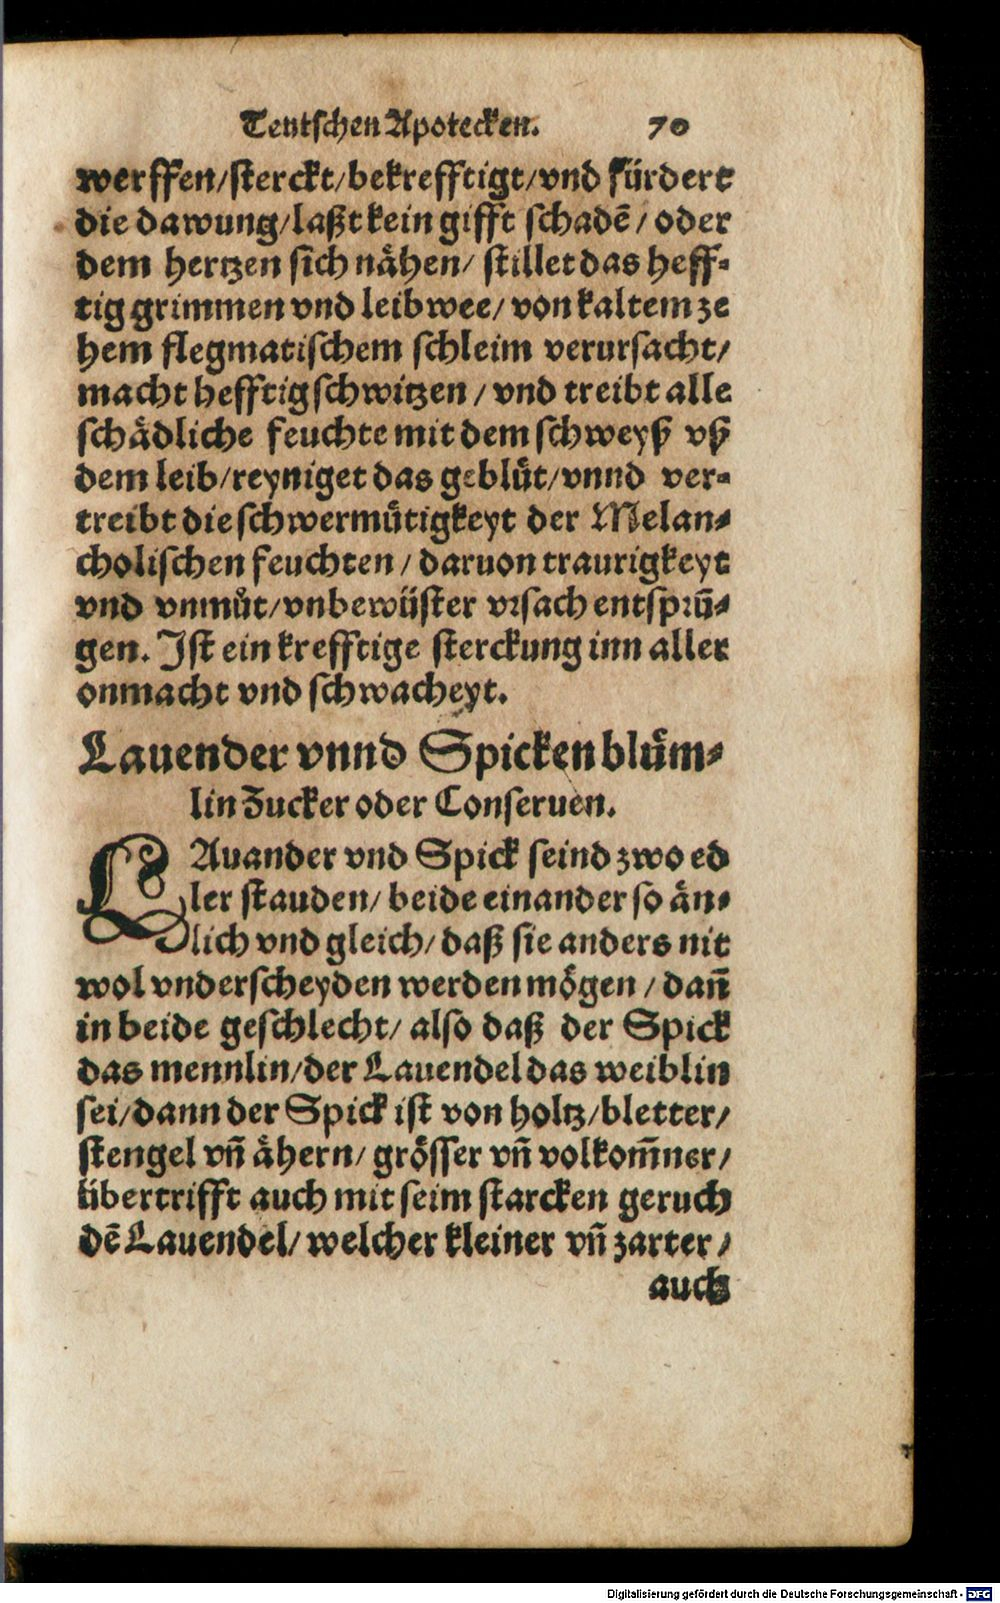 Teutschen Apotecken. 70
werffen/sterckt/bekrefftigt/vnd fürdert
die dawung/laßt kein gifft schadē/ oder
dem hertzen sich nåhen/ stillet das heff-
tig grimmen vnd leibwee/ von kaltem ze
hem flegmatischem schleim verursacht/
macht hefftig schwitzen / vnd treibt alle
schådliche feuchte mit dem schweyß vß
dem leib/reyniget das geblůt/vnnd ver-
treibt die schwermůtigkeyt der Melan-
cholischen feuchten / daruon traurigkeyt
vnd vnmůt/vnbewüster vrsach entsprǖ-
gen. Ist ein krefftige sterckung inn aller
onmacht vnd schwacheyt.
Lauender vnnd Spicken blům-
lin Zucker oder Conseruen.
LAuander vnd Spick seind zwo ed
ler stauden/ beide einander so än-
lich vnd gleich/ daß sie anders nit
wol vnderscheyden werden mögen / dañ
in beide geschlecht/ also daß der Spick
das mennlin/der Lauendel das weiblin
sei/dann der Spick ist von holtz/bletter/
stengel vñ åhern/ grösser vñ volkom̄ner/
übertrifft auch mit seim starcken geruch
dē Lauendel/ welcher kleiner vñ zarter /
auch
Digitalisierung gefördert durch die Deutsche Forschungsgemeinschaft - DFG